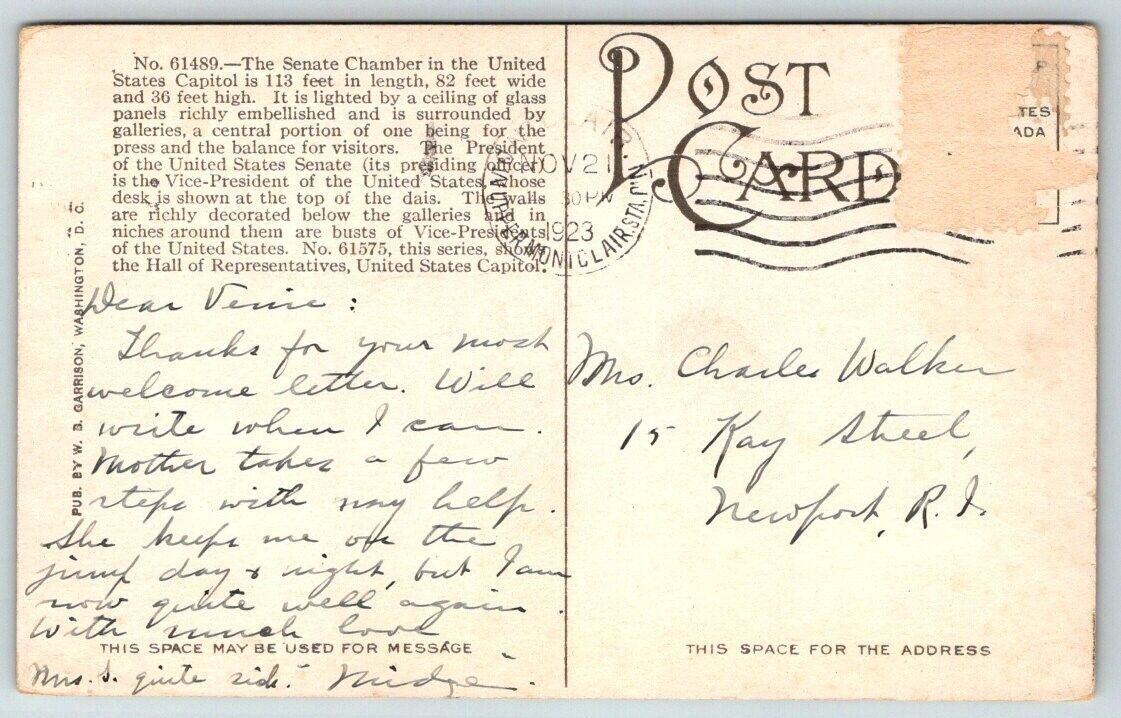 No. 61489.—The Senate Chamber in the United
States Capitol is 113 feet in length, 82 feet wide
and 36 feet high. It is lighted by a ceiling of glass
panels richly embellished and is surrounded by
galleries, a central portion of one being for the
press and the balance for visitors. The President
of the United States Senate (its presiding officer)
is the Vice-President of the United States, whose
desk is shown at the top of the dais. The walls
are richly decorated below the galleries and in
niches around them are busts of Vice-Presidents
of the United States. No. 61575, this series, shows
the Hall of Representatives, United States Capitol.
PUB. BY W. B. GARRISON, WASHINGTON, D. C.
Dear Venie :
Thanks for your most
welcome letter. Will
write when I can.
Mother takes a few
steps with my help.
She keeps me on the
jump day & night, but I am
now quite well again.
With much love
THIS SPACE MAY BE USED FOR MESSAGE
Mrs. S. quite sick. "Midge".
POST CARD
NOV 21
30 PM
1923
UPPER MONTCLAIR STA. N.J.
TES
ADA
Mrs. Charles Walker
15 Kay Street,
Newport, R. I.
THIS SPACE FOR THE ADDRESS